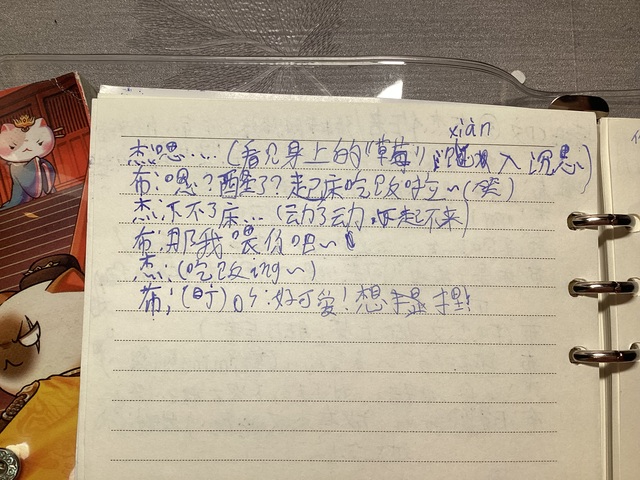 xiàn
杰:嗯…(看见身上的"草莓",入沉思)
布:嗯?醒了?起床吃饭啦~(笑)
杰:下不了床…(动了动,起不来)
布:那我喂你吧~
杰:(吃饭ing~)
布:(盯)好可爱!想